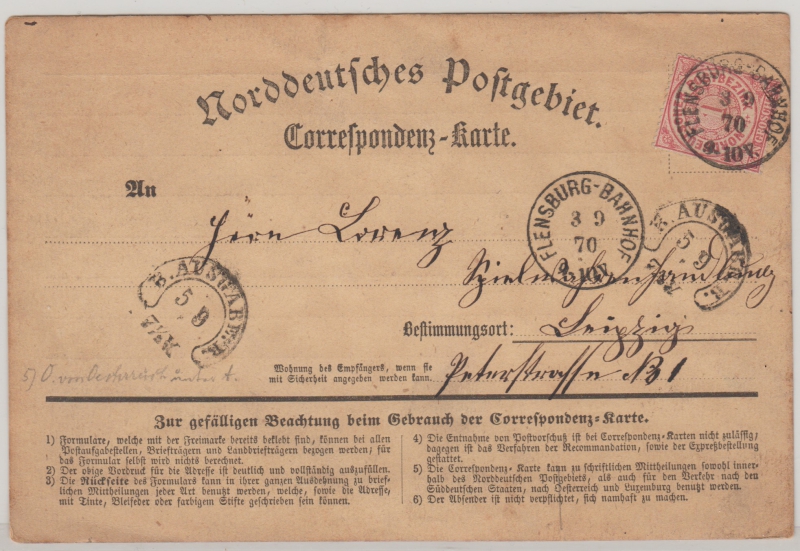 Norddeutsches Postgebiet.
Correspondenz-Karte.
FLENSBURG-BAHNHOF
3 9
70
9-10V.
An
Herrn Lorenz
FLENSBURG-BAHNHOF
3 9
70
9-10V.
Spielwaarenhandlung
B. AUSGABE
5 9
B. AUSGABE
5 9
Bestimmungsort: Leipzig
Wohnung des Empfängers, wenn sie
mit Sicherheit angegeben werden kann.
Peterstrasse No 1
Zur gefälligen Beachtung beim Gebrauch der Correspondenz-Karte.
1) Formulare, welche mit der Freimarke bereits beklebt sind, können bei allen
Postaufgabestellen, Briefträgern und Landbriefträgern bezogen werden; für
das Formular selbst wird nichts berechnet.
2) Der obige Vordruck für die Adresse ist deutlich und vollständig auszufüllen.
3) Die Rückseite des Formulars kann in ihrer ganzen Ausdehnung zu brief-
lichen Mittheilungen jeder Art benutzt werden, welche, sowie die Adresse,
mit Tinte, Bleifeder oder farbigem Stifte geschrieben sein können.
4) Die Entnahme von Postvorschuß ist bei Correspondenz-Karten nicht zulässig,
dagegen ist das Verfahren der Recommandation, sowie der Expreßbestellung
gestattet.
5) Die Correspondenz-Karte kann zu schriftlichen Mittheilungen sowohl inner-
halb des Norddeutschen Postgebiets, als auch für den Verkehr nach den
Süddeutschen Staaten, nach Oesterreich und Luxemburg benutzt werden.
6) Der Absender ist nicht verpflichtet, sich namhaft zu machen.